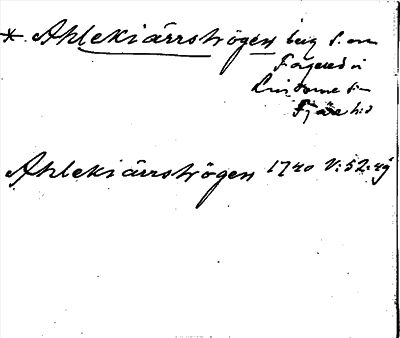 * Ahlekiärrströgen berg S. om
Fagered i
Lindome sn
Fjäre hd
Ahlekiärrströgen 1740 V:52:49